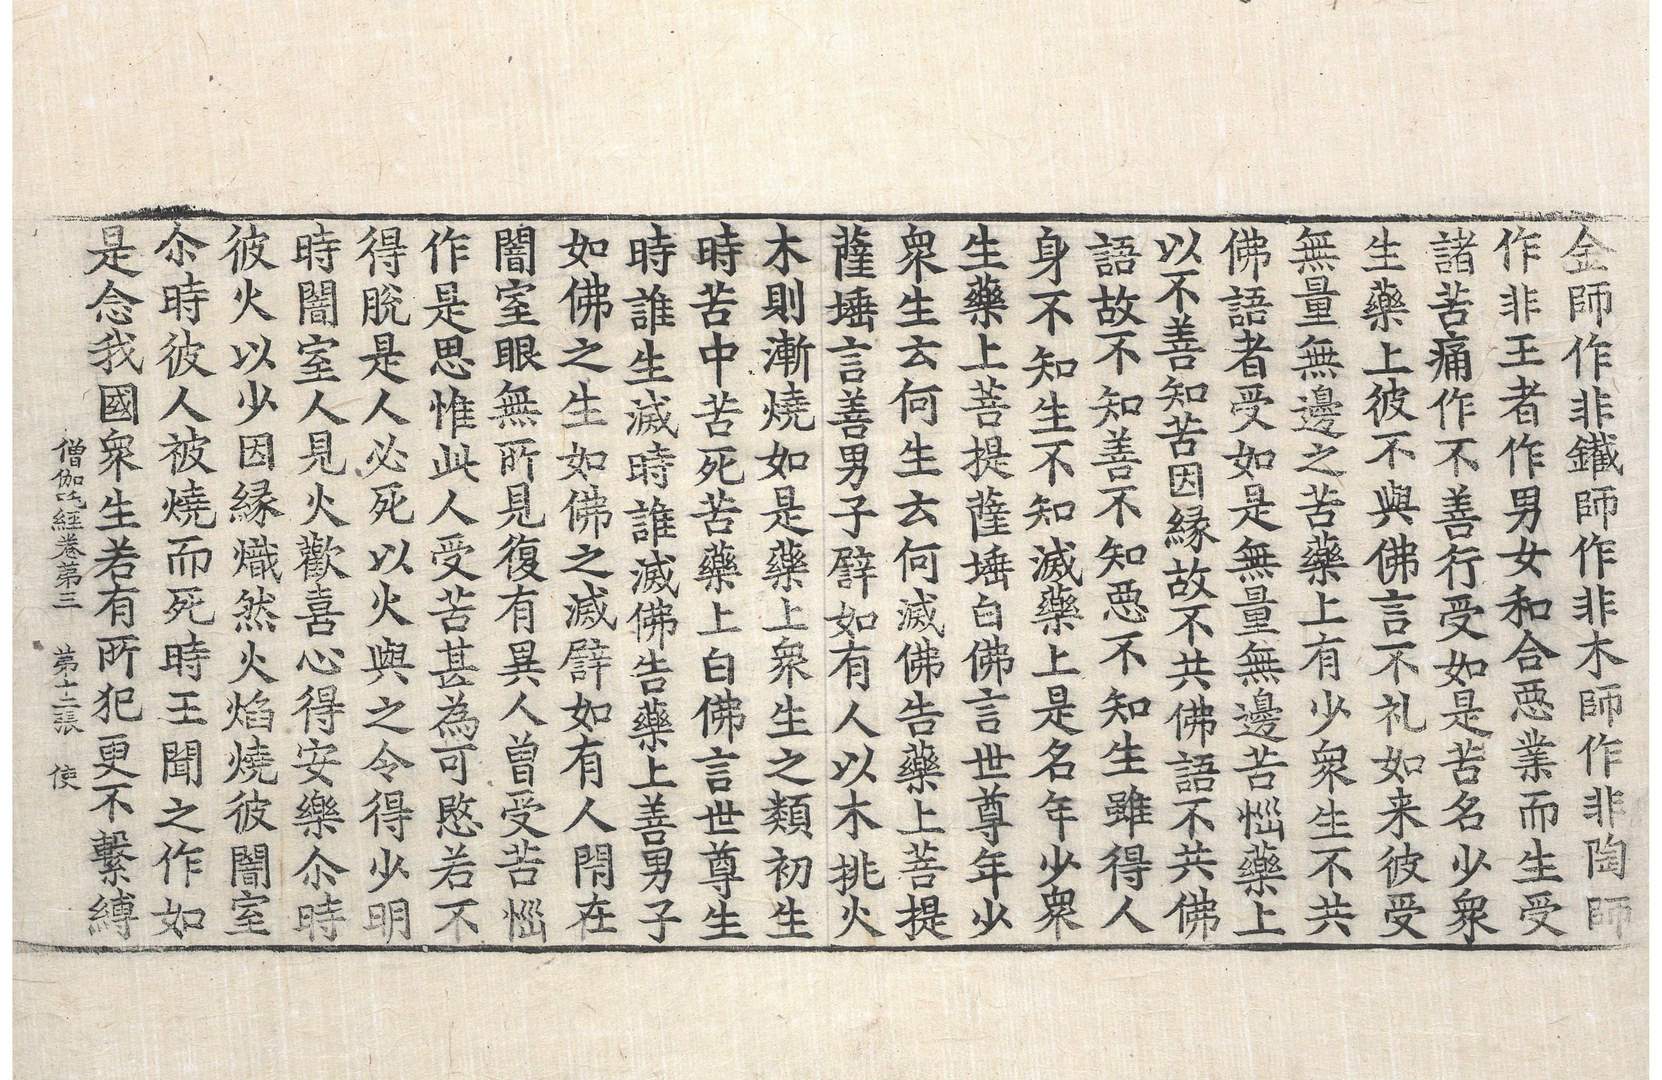 金師作非鐵師作非木師作非陶師
作非王者作男女和合惡業而生受
諸苦痛作不善行受如是苦名少衆
生藥上彼不與佛言不礼如来彼受
無量無邊之苦藥上有少衆生不共
佛語者受如是無量無邊苦惱藥上
以不善知苦因縁故不共佛語不共佛
語故不知善不知惡不知生雖得人
身不知生不知滅藥上是名年少衆
生藥上菩提薩埵白佛言世尊年少
衆生云何生云何滅佛告藥上菩提
薩埵言善男子譬如有人以木挑火
木則漸燒如是藥上衆生之類初生
時苦中苦死苦藥上白佛言世尊生
時誰生滅時誰滅佛告藥上善男子
如佛之生如佛之滅譬如有人閇在
闇室眼無所見復有異人曽受苦惱
作是思惟此人受苦甚為可愍若不
得脫是人必死以火與之令得少明
時闇室人見火歡喜心得安樂尒時
彼火以少因縁熾然火焰燒彼闇室
尒時彼人被燒而死時王聞之作如
是念我國衆生若有所犯更不繫縛
僧伽吒經卷第三 第十二張 使